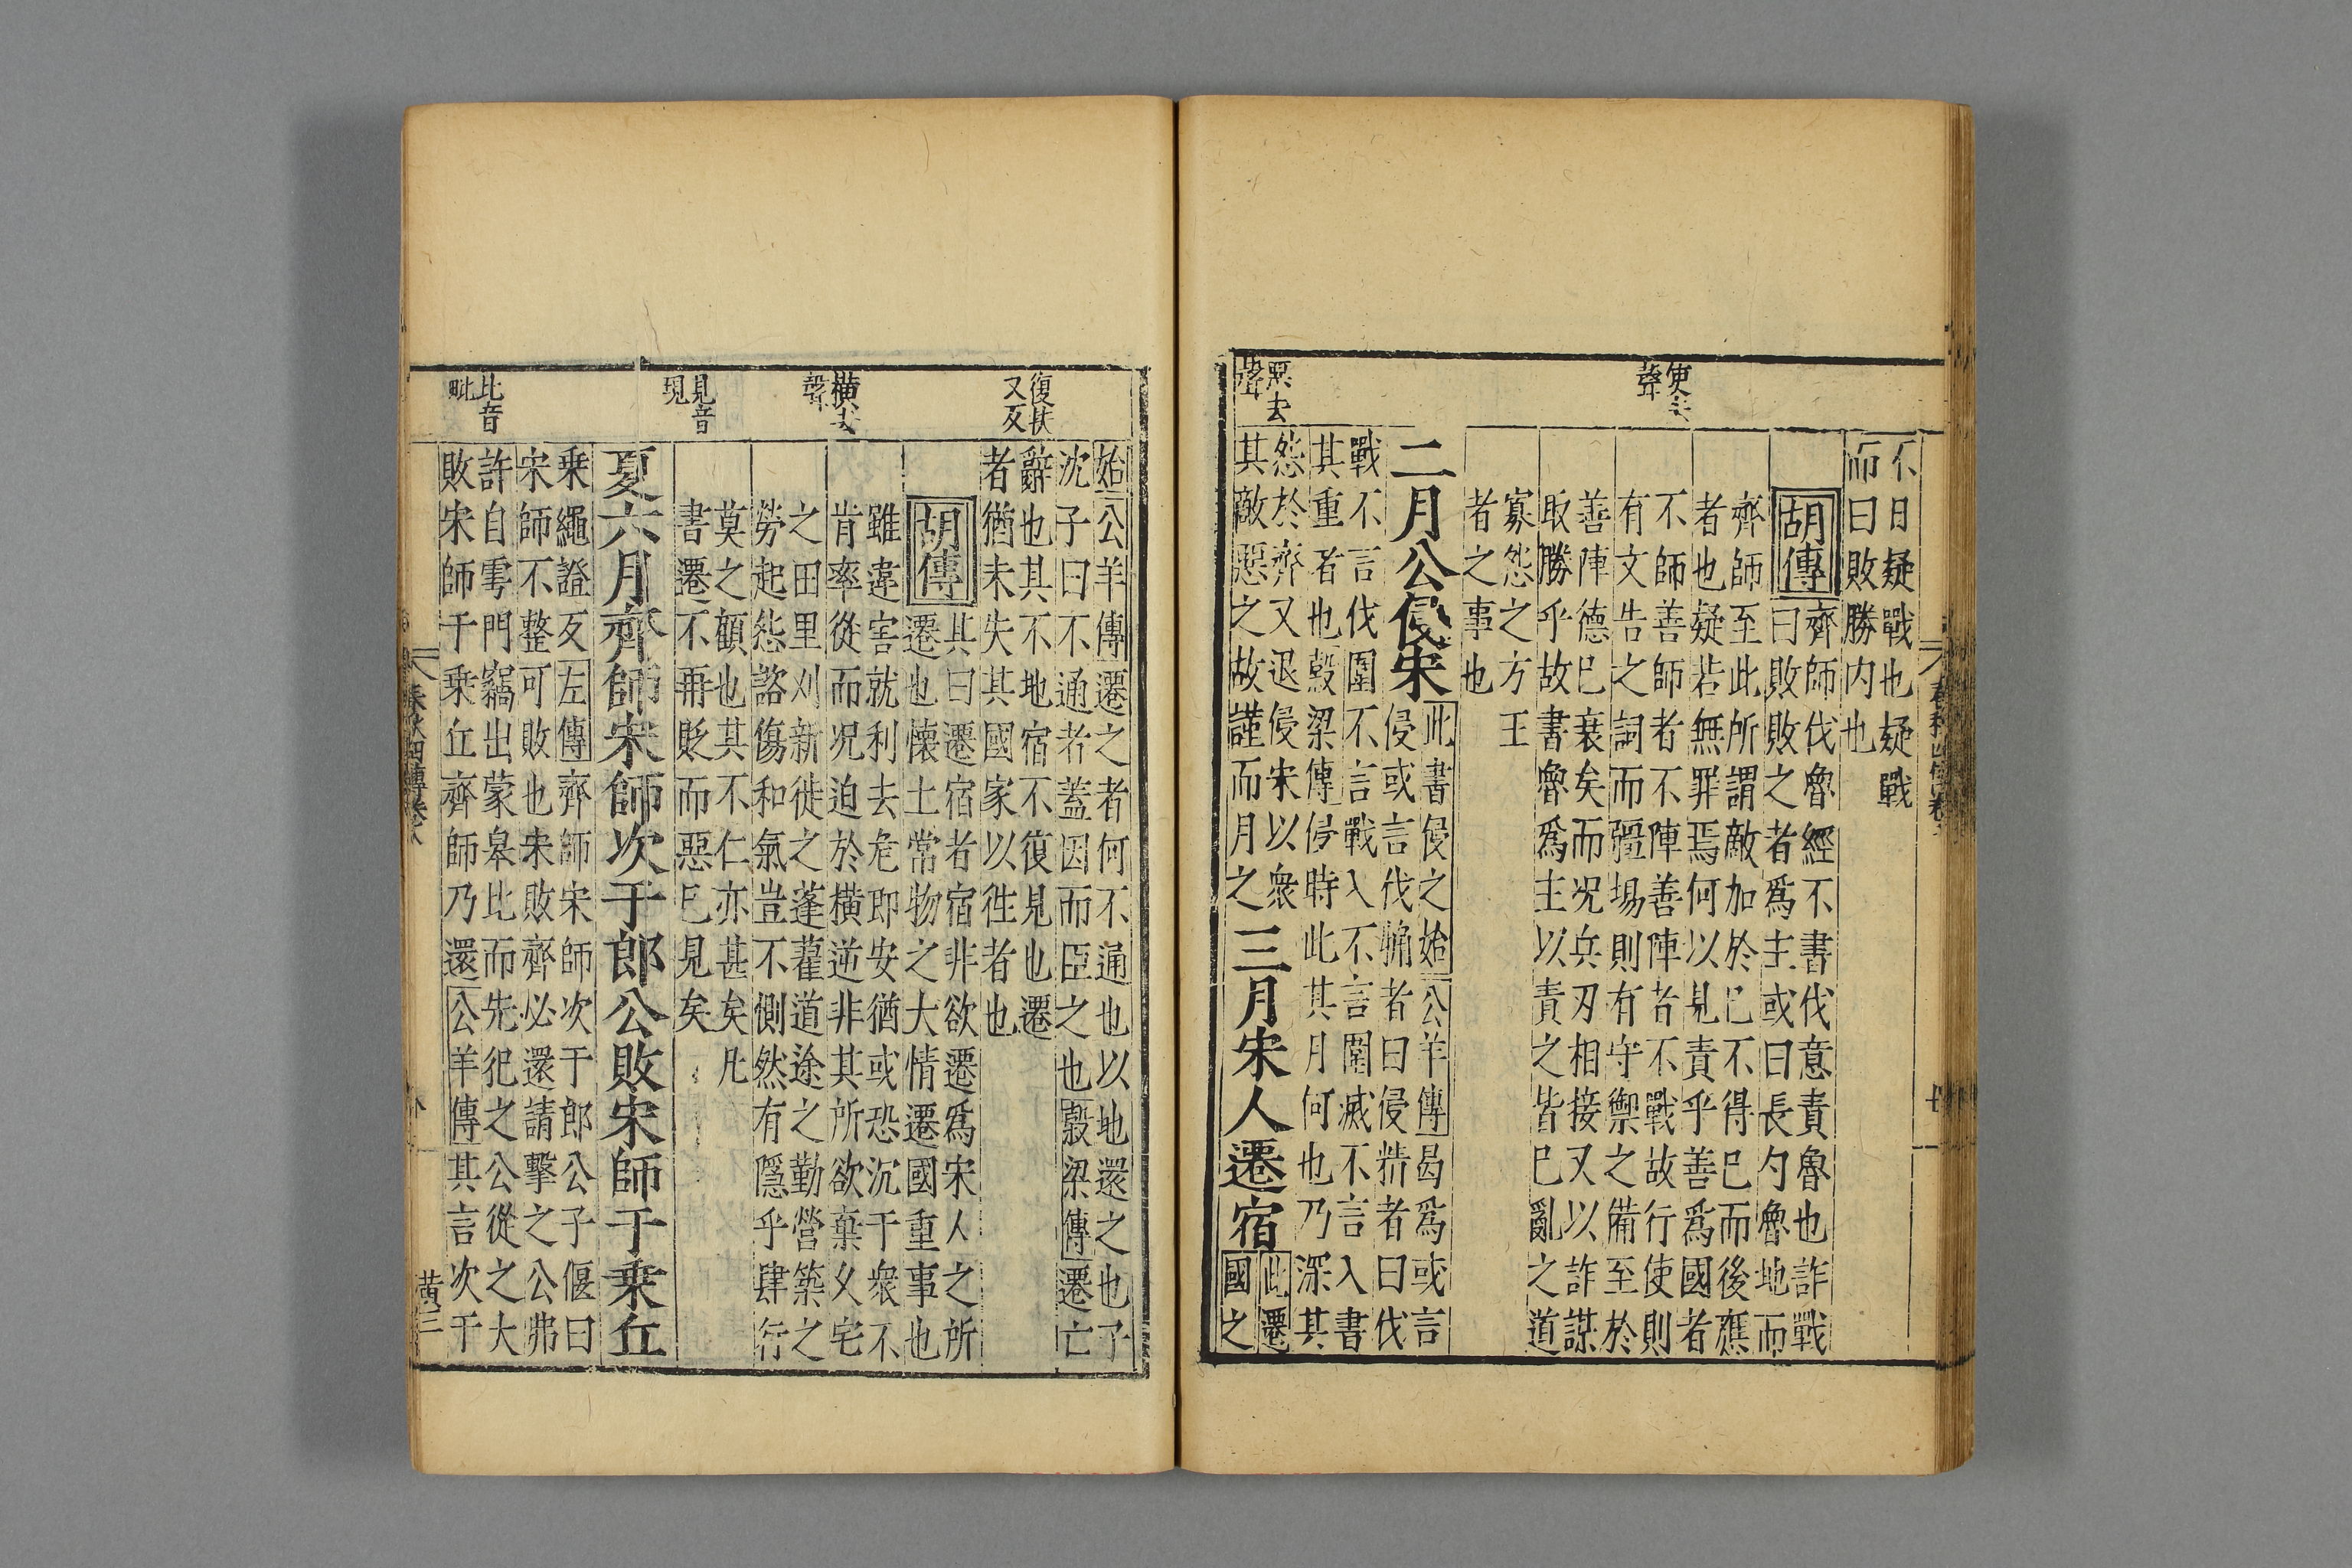 不日疑戰也疑戰
而曰敗勝内也
胡傳
齊師伐魯經不書伐意責魯也詐戰
曰敗敗之者爲主或曰長勺魯地而
齊師至此所謂敵加於巳不得巳而後應
者也疑若無罪焉何以見責乎善爲國者
不師善師者不陣善陣者不戰故行使則
有文告之詞而疆埸則有守禦之備至於
善陣德巳衰矣而况兵刃相接又以詐謀
取勝乎故書魯爲主以責之皆巳亂之道
寡怨之方王
者之事也
二月公侵宋
此書侵之始公羊傳曷爲或言
侵或言伐觕者曰侵精者曰伐
戰不言伐圍不言戰入不言圍滅不言入書
其重者也穀梁傳侵時此其月何也乃深其
怨於齊又退侵宋以衆
其敵惡之故謹而月之
三月宋人遷宿
此遷
國之
使去聲
惡去聲
始公羊傳遷之者何不通也以地還之也子
沈子曰不通者蓋因而臣之也穀梁傳遷亡
辭也其不地宿不復見也遷
者猶未失其國家以徃者也
胡傳
其曰遷宿者宿非欲遷爲宋人之所
遷也懷土常物之大情遷國重事也
雖違害就利去危即安猶或恐沉于衆不
肯率從而况迫於横逆非其所欲棄乂宅
之田里刈新徙之蓬藋道途之勤營築之
勞起怨諮傷和氣豈不惻然有隱乎肆行
莫之顧也其不仁亦甚矣凡
書遷不再貶而惡巳見矣
夏六月齊師宋師次于郎公敗宋師于乗丘
乗繩證反左傳齊師宋師次于郎公子偃曰
宋師不整可敗也宋敗齊必還請擊之公弗
許自雩門竊出蒙皋比而先犯之公從之大
敗宋師于乗丘齊師乃還公羊傳其言次于
復扶又反
横去聲
見音現
比音毗
春秋四傳卷八
黄三